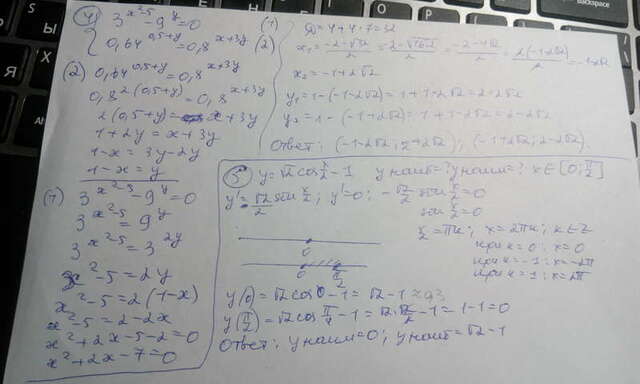 4) 3^(x²-5) - 9^y = 0 (1)
{ 0,64^(0,5+y) = 0,8^(x+3y) (2)
(2) 0,64^(0,5+y) = 0,8^(x+3y)
0,8^(2(0,5+y)) = 0,8^(x+3y)
2(0,5+y) = x+3y
1+2y = x+3y
1-x = 3y-2y
1-x = y
(1) 3^(x²-5) - 9^y = 0
3^(x²-5) = 9^y
3^(x²-5) = 3^(2y)
x²-5 = 2y
x²-5 = 2(1-x)
x²-5 = 2-2x
x²+2x-5-2 = 0
x²+2x-7 = 0
Д = 4+4·7 = 32
x₁ = (-2-√32)/2 = (-2-√16·2)/2 = (-2-4√2)/2 = 2(-1-2√2)/2 = -1-2√2
x₂ = -1+2√2
y₁ = 1-(-1-2√2) = 1+1+2√2 = 2+2√2
y₂ = 1-(-1+2√2) = 1+1-2√2 = 2-2√2
Ответ: (-1-2√2; 2+2√2); (-1+2√2; 2-2√2).
5) y = √2 cos x/2 - 1 y наиб=? y наим=? x∈[0; π/2]
y' = -√2/2 sin x/2; y'=0; -√2/2 sin x/2 = 0
sin x/2 = 0
x/2 = πk; x = 2πk; k∈Z
при k=0: x=0
при k=-1: x=-2π
при k=1: x=2π
0
0 π/2
y(0) = √2 cos 0 - 1 = √2 - 1
y(π/2) = √2 cos π/4 - 1 = √2·√2/2 - 1 = 1-1 = 0
Ответ: y наим=0; y наиб=√2-1